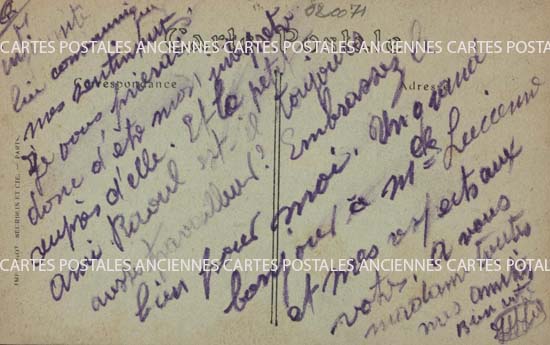 020071
Carte Postale
Correspondance
Adresse
CARTES POSTALES ANCIENNES CARTES POSTALES ANCIENNES CARTES POSTALES ANCIENNES
bien communiquer
mes sentiments
Je vous prierais
donc d'être mon interprète
auprès d'elle. Et le petit
ami Raoul est-il toujours
aussi travailleur? Embrassez le
bien pour moi. Un grand
bonjour à Mlle Lucienne
et mes respectaux
votre, à vous
madame toutes
mes amitiés
Bien
CARTES POSTALES ANCIENNES CARTES POSTALES ANCIENNES CARTES POSTALES ANCIENNES
ET CIE, - PARIS